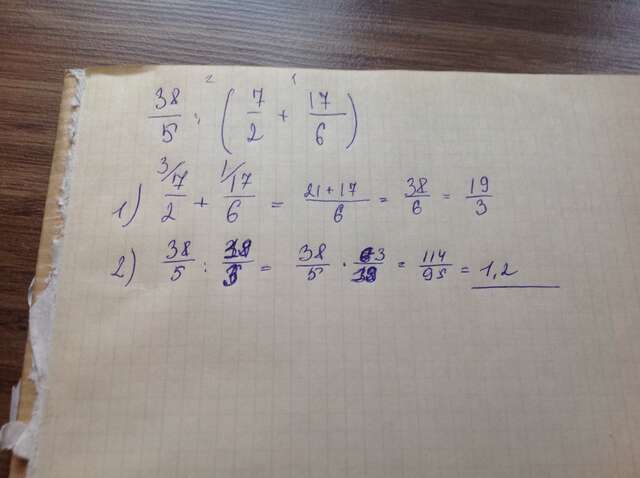 38/5 : (7/2 + 17/6)
1) 7/2 + 17/6 = 21+17/6 = 38/6 = 19/3
2) 38/5 : = 38/5 · = 114/95 = 1,2